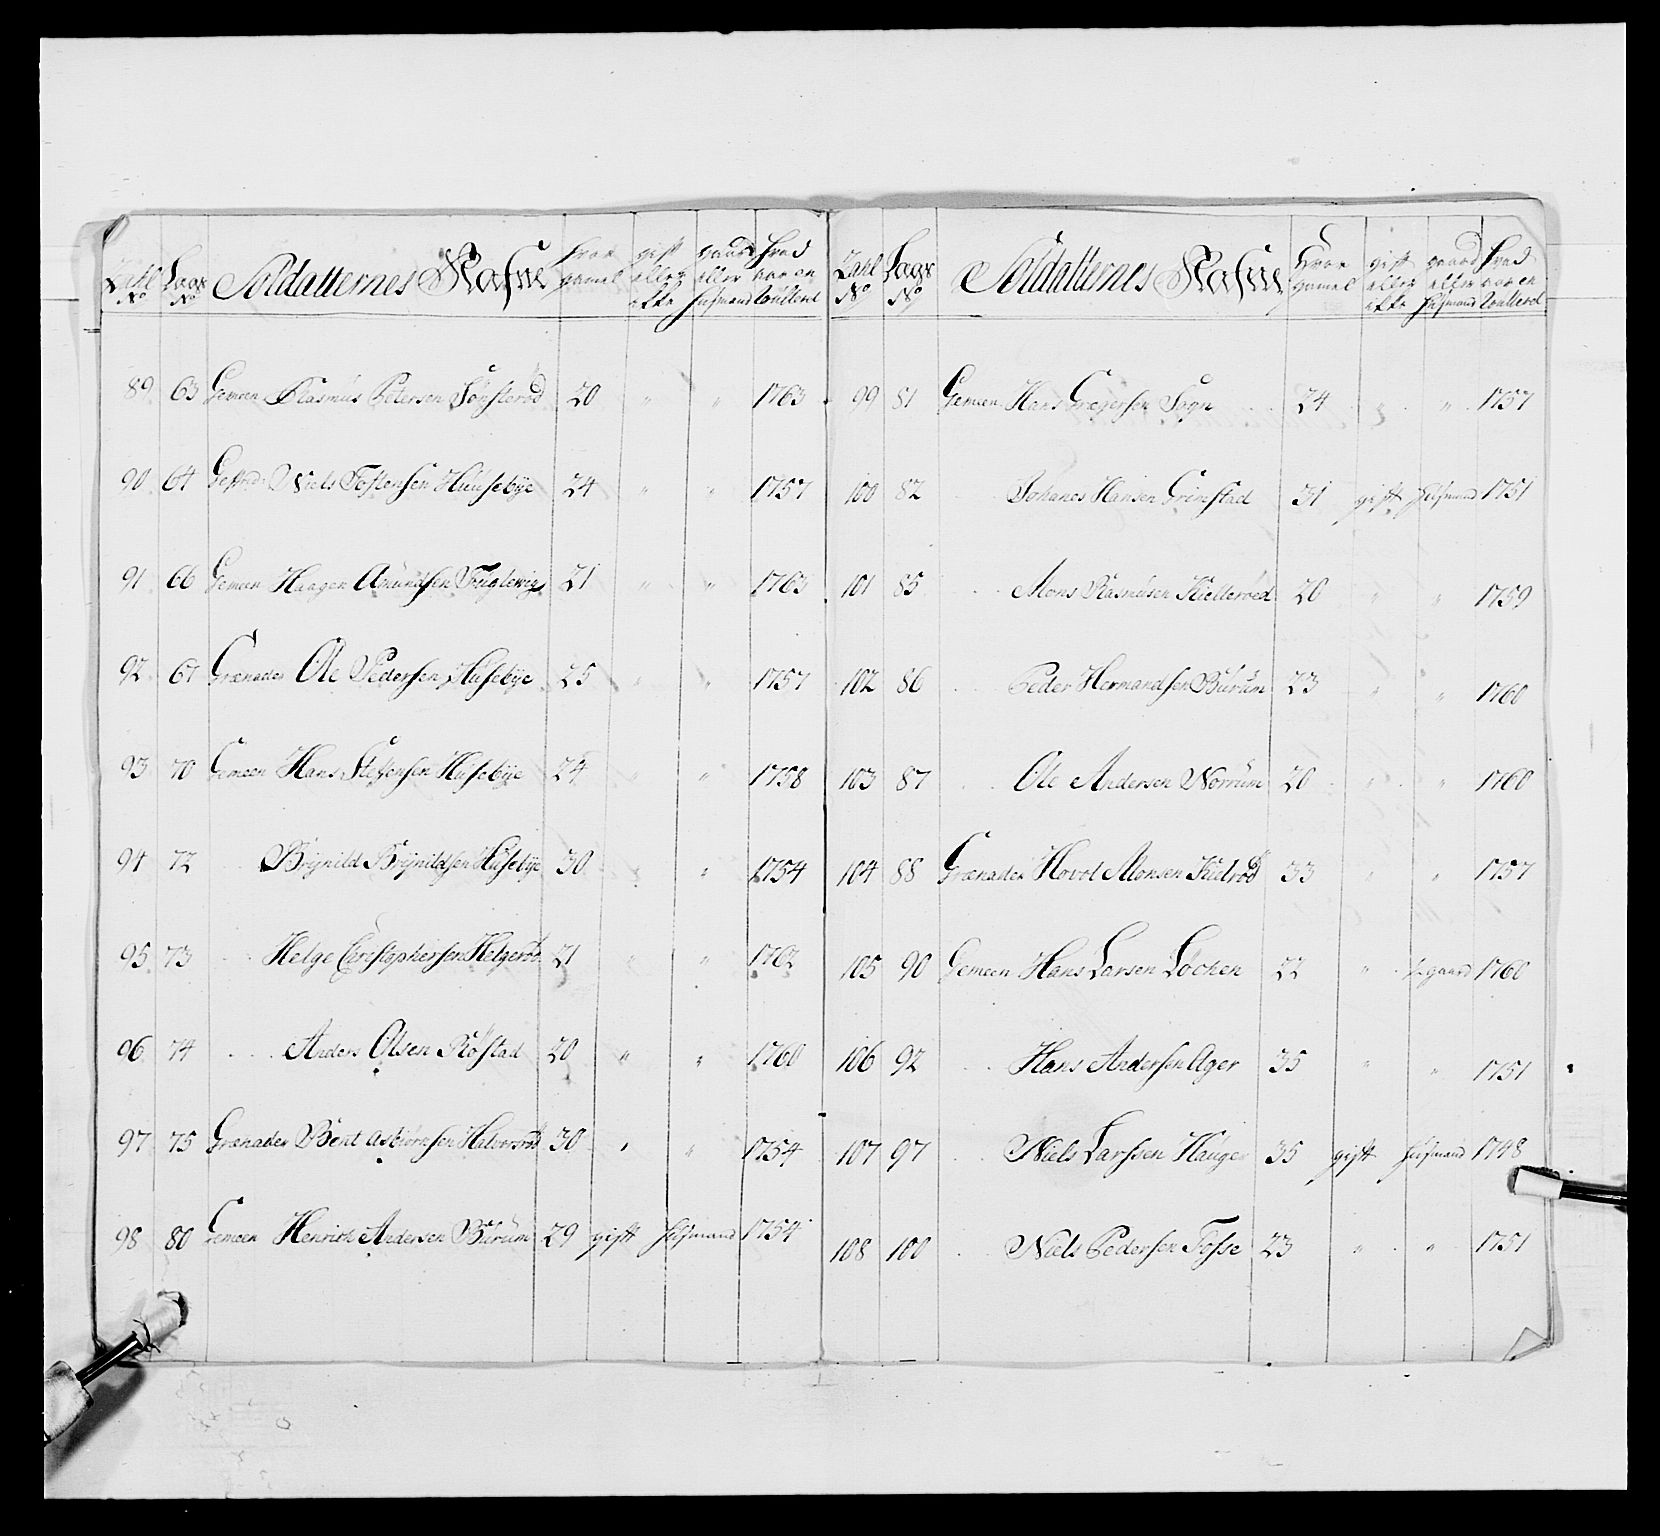 Zahl No Lags No Soldatternes Nafne hvor gamel gift eller ikke gaard eller husmand hvad aar en roulleret
89 63 Gemeen Rasmus Petersen Sønsterød 20 " " 1763
90 64 Gefrid: Niels Tostensen Huusebÿe 24 " " 1757
91 66 Gemeen Haagen Amundsen Fuglevig 21 " " 1763
92 67 Grenader Ole Pedersen Husebÿe 25 " " 1757
93 70 Gemeen Hans Steffensen Husebÿe 24 " " 1758
94 72 Brÿnild Brÿnildsen Husebÿe 30 " " 1754
95 73 Helge Christophersen Helgerød 21 " " 1762
96 74 Anders Olsen Røstad 20 " " 1760
97 75 Grenader Bent Asbiørnsen Halvorsrød 30 " " 1754
98 80 Gemeen Henrich Andersen Burum 29 gift husmand 1754
Zahl No Lags No Soldatternes Nafne hvor gamel gift eller ikke gaard eller husmand hvad aar en roullerd
99 81 Gemeen Hans Gregersen Sogn 24 " " 1757
100 82 Johanes Hansen Grimstad 31 gift husmand 1751
101 85 Mons Rasmusen Kiellerød 20 " " 1759
102 86 Peder Hermandsen Burum 23 " " 1760
103 87 Ole Andersen Norrum 20 " " 1760
104 88 Grenader Hovol Monsen Kielrød 33 " " 1757
105 90 Gemeen Hans Larsen Løchen 22 " gaard 1760
106 92 Hans Andersen Ager 35 " " 1751
107 97 Niels Larssen Hauge 35 gift husmand 1748
108 100 Niels Pedersen Fosse 23 " " 1751